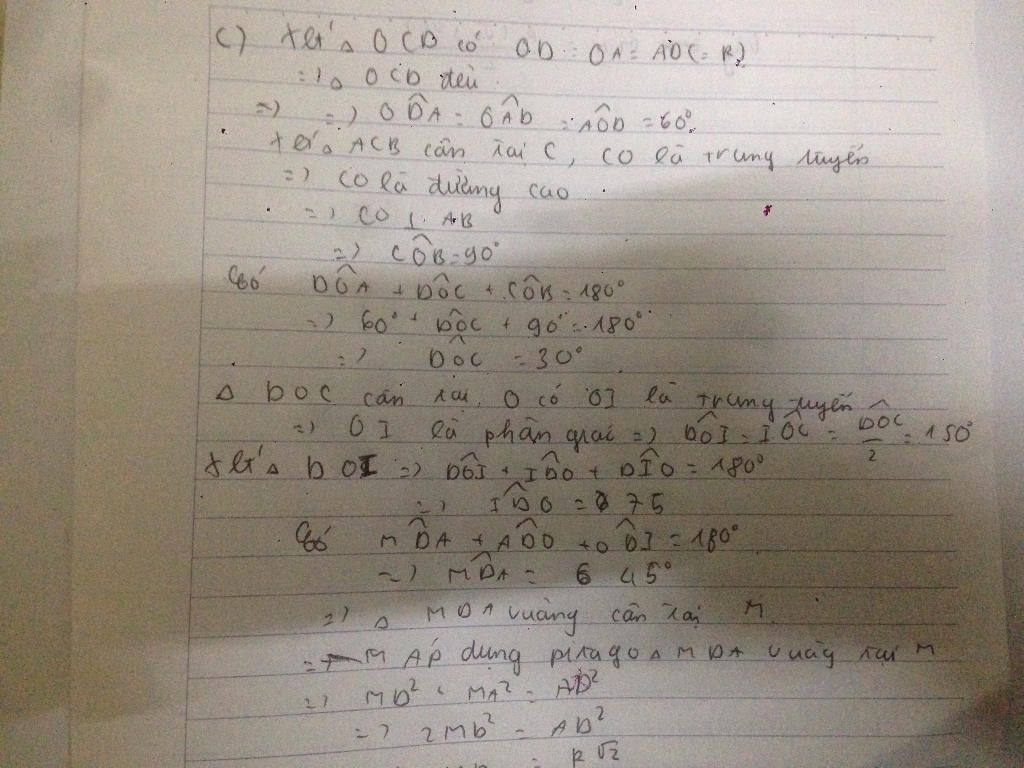 c) Xét △ OCD có OD = OA = AD (= R)
=> △ OCD đều
=> => ODA = OAD = AOD = 60°
Xét △ ACB cân tại C, CO là trung tuyến
=> CO là đường cao
=> CO ⊥ AB
=> COB = 90°
Có DOA + DOC + COB = 180°
=> 60° + DOC + 90° = 180°
=> DOC = 30°
△ DOC cân tại O có OI là trung tuyến
=> OI là phân giác => DOI = IOC = DOC/2 = 150°
Xét △ DOI => DOI + IDO + DIO = 180°
=> IDO = 75
Có MDA + ADO + ODI = 180°
=> MDA = 45°
=> △ MDA vuông cân tại M
=> M Áp dụng pitago △ MDA vuông tại M
=> MD² + MA² = AD²
=> 2MD² = AD²
= R√2